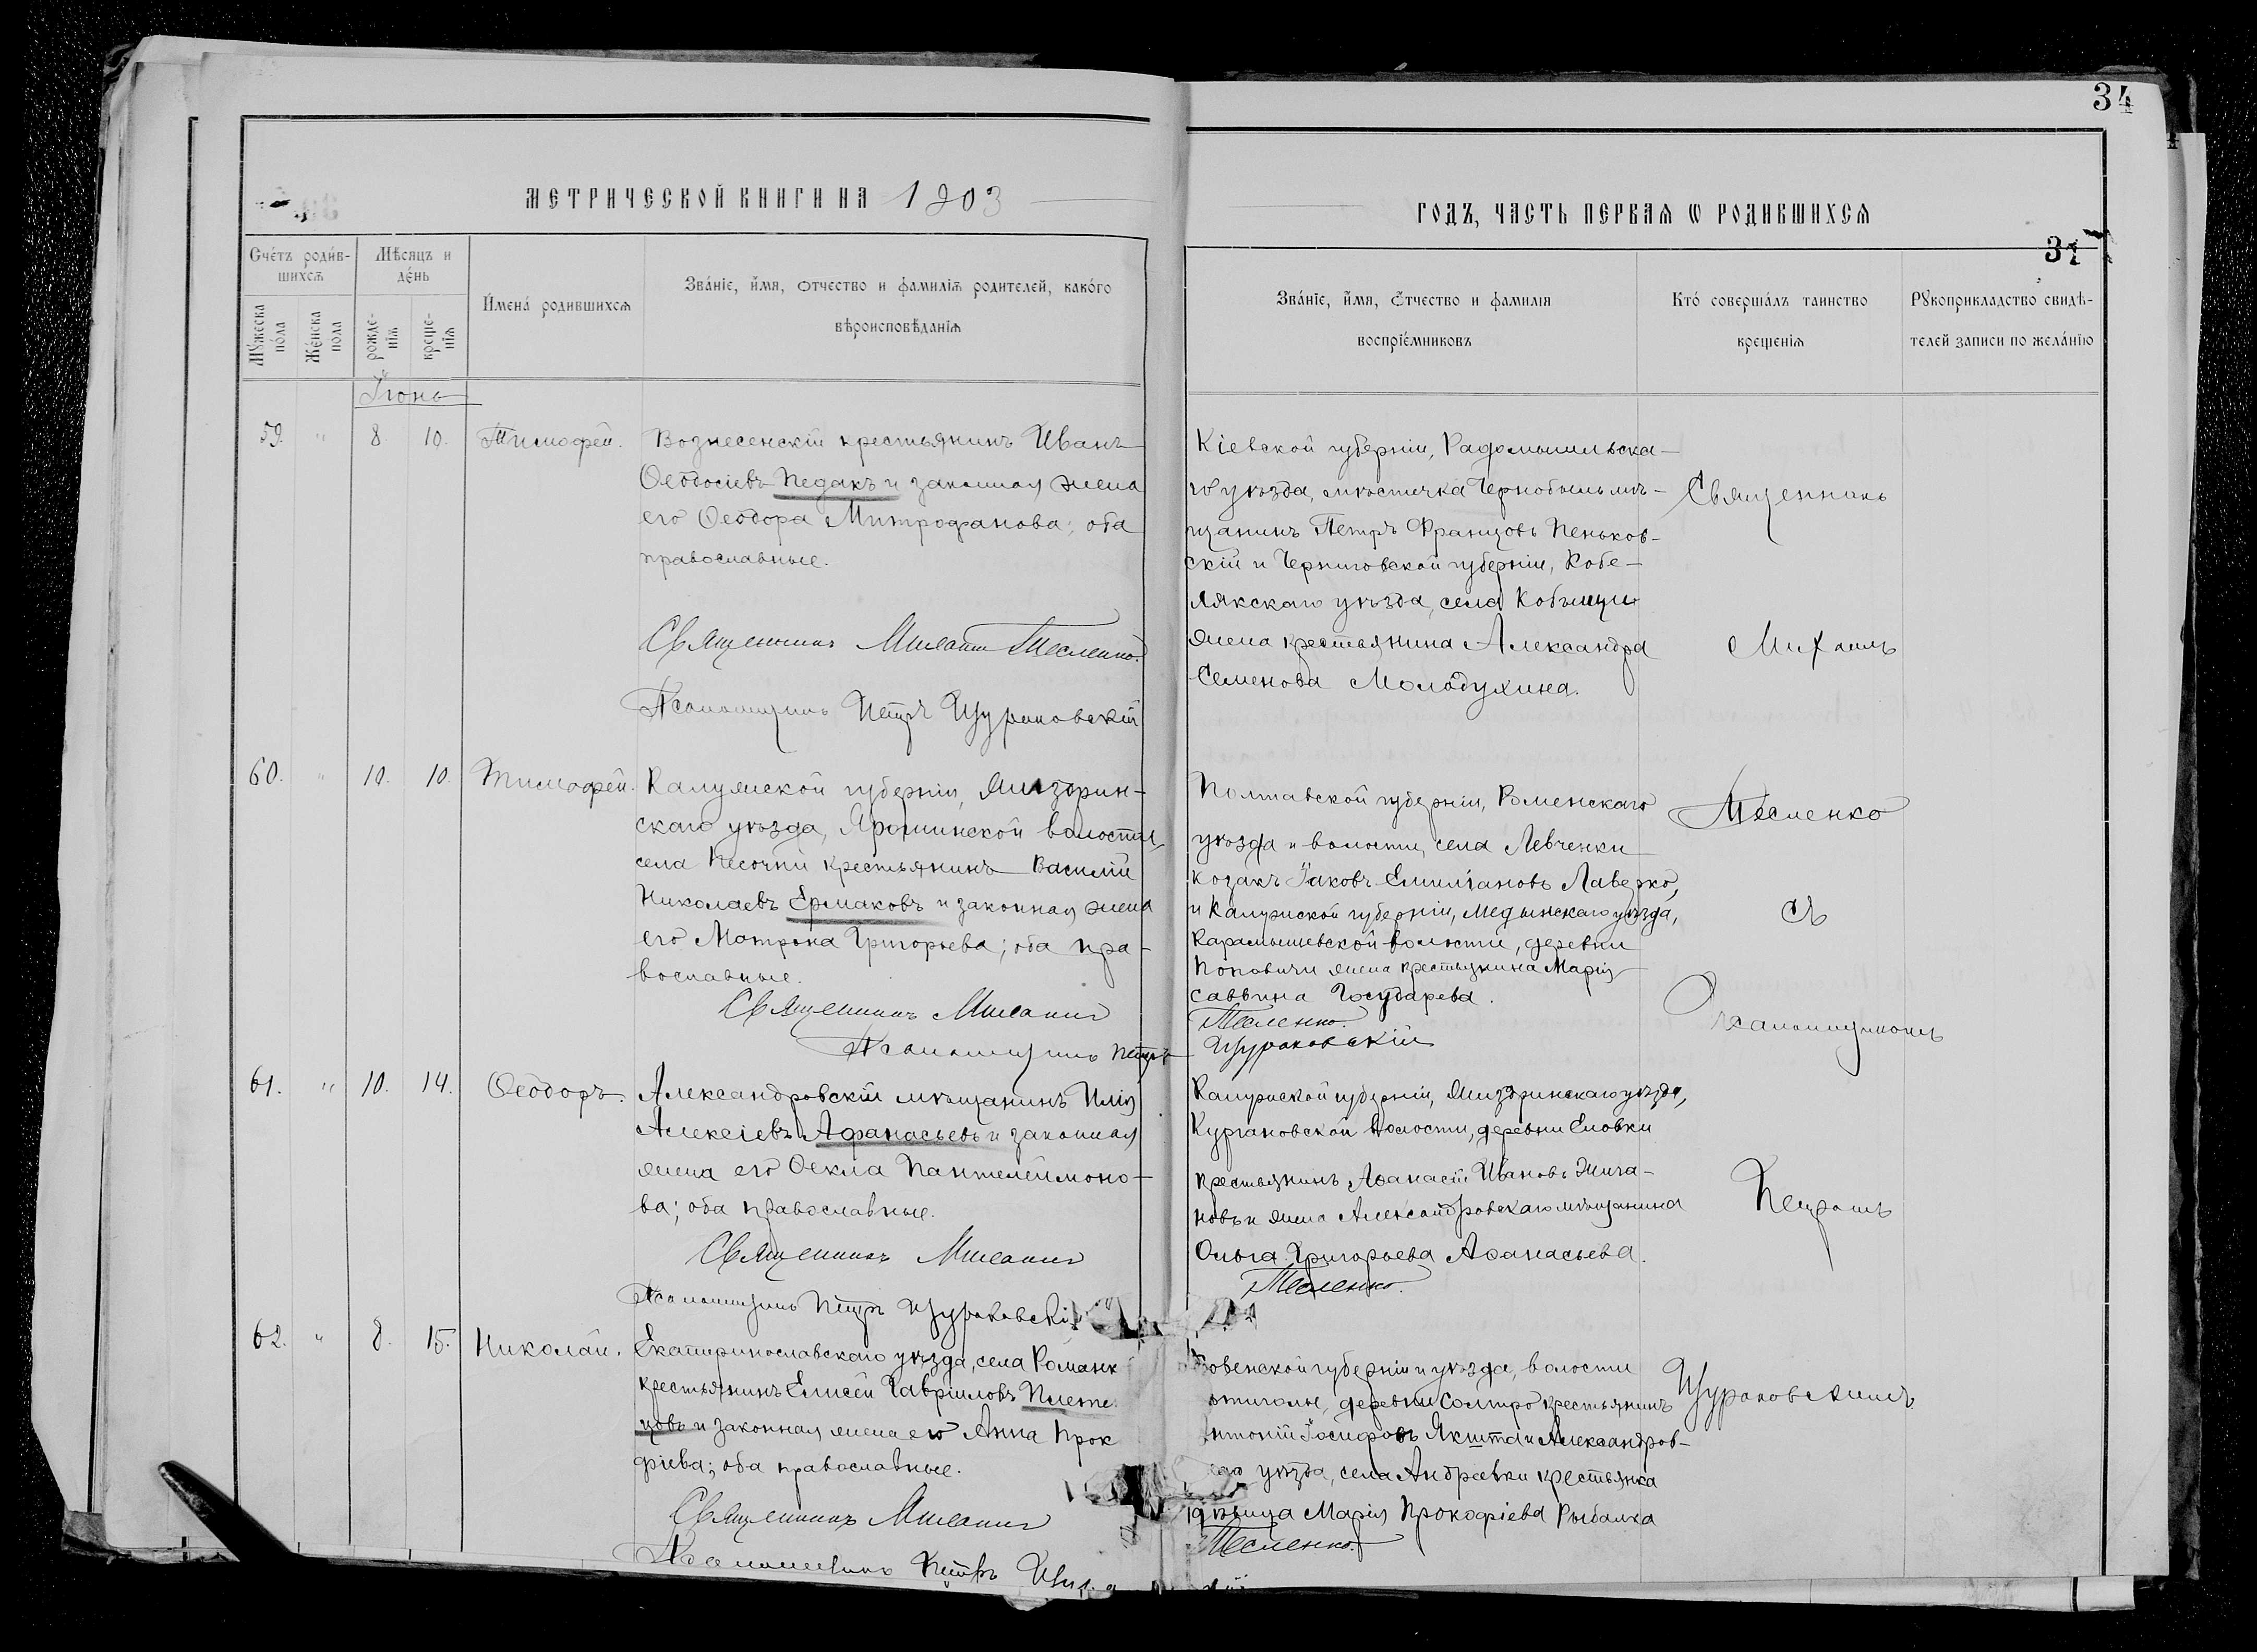 34
МЕТРИЧЕСКОЙ КНИГИ НА 1903
ГОДЪ, ЧАСТЬ ПЕРВАЯ Ѡ РОДИВШИХСЯ
Счетъ родив-
шихся
Мѣсяцъ и
день
Имена родившихся
Званіе, имя, отчество и фамилія родителей, какого
вѣроисповѣданія
Мужеска
пола
Женска
пола
рожде-
нія
креще-
нія
Званіе, имя, отчество и фамилія
воспріемниковъ
Кто совершалъ таинство
крещенія
Рукоприкладство свидѣ-
телей записи по желанію
Іюнь
59. " 8. 10. Тимофей.
Вознесенскій крестьянинъ Иванъ
Ѳеодосіевъ Педакъ и законная жена
его Ѳеодора Митрофанова; оба
православные.
Священникъ Михаилъ Тесленко.
Псаломщикъ Петръ Щураковскій
Кіевской губерніи, Радомышльска-
го уѣзда, мѣстечка Чернобыль мѣ-
щанинъ Петръ Францовъ Пеньков-
скій и Черниговской губерніи, Кобе-
лякскаго уѣзда, села Кобыщи
жена крестьянина Александра
Семенова Молодухина.
Священникъ
Михаилъ
Тесленко
съ
Псаломщикомъ
Петромъ
Щураковскимъ
60. " 10. 10. Тимофей.
Калужской губерніи, Жиздрин-
скаго уѣзда, волости,
села Песочни крестьянинъ Василій
Николаевъ Ермаковъ и законная жена
его Матрона Григорьева; оба пра-
вославные.
Священникъ Михаилъ
Псаломщикъ Петръ
Полтавской губерніи, Роменскаго
уѣзда и волости, села Левченки
козакъ Іаковъ Емиліановъ Лаверко,
и Калужской губерніи, Медынскаго уѣзда,
Карамышевской волости, деревни
Поповичи жена крестьянина Марія
Саввина Государева.
Тесленко.
Щураковскій
61. " 10. 14. Ѳеодоръ.
Александровскій мѣщанинъ Илія
Алексіевъ Афанасьевъ и законная
жена его Ѳекла Пантелеимоно-
ва; оба православные.
Священникъ Михаилъ
Псаломщикъ Петръ Щураковскі
Калужской губерніи, Жиздринскаго уѣзда,
Кургановской волости, деревни Еловки
крестьянинъ Аѳанасій Ивановъ Жига-
новъ и жена Александровскаго мѣщанина
Ольга Григорьева Аѳанасьева.
Тесленко.
62. " 8. 15. Николай.
Екатеринославскаго уѣзда, села Романк
крестьянинъ Елисей Гавріиловъ Плете
цовъ и законная жена его Анна Прок
фіева; оба православные.
Священникъ Михаилъ
Псаломщикъ Петръ
овенской губерніи и уѣзда, волости
деревни Солтро крестьянинъ
нтоній Іосифовъ Якшта и Александров-
уѣзда, села Андреевки крестьянка
дѣвица Марія Прокофіева Рыбалка
Тесленко.